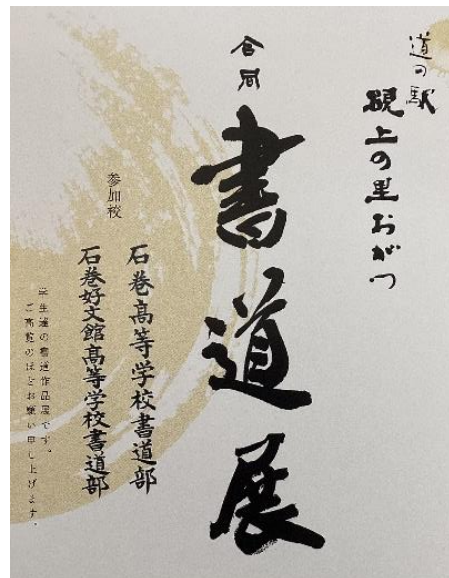 道の駅
硯上の里おがつ
合同
書道展
参加校
石巻高等学校書道部
石巻好文館高等学校書道部
学生達の書道作品展です。
ご高覧のほどお願い申し上げます。